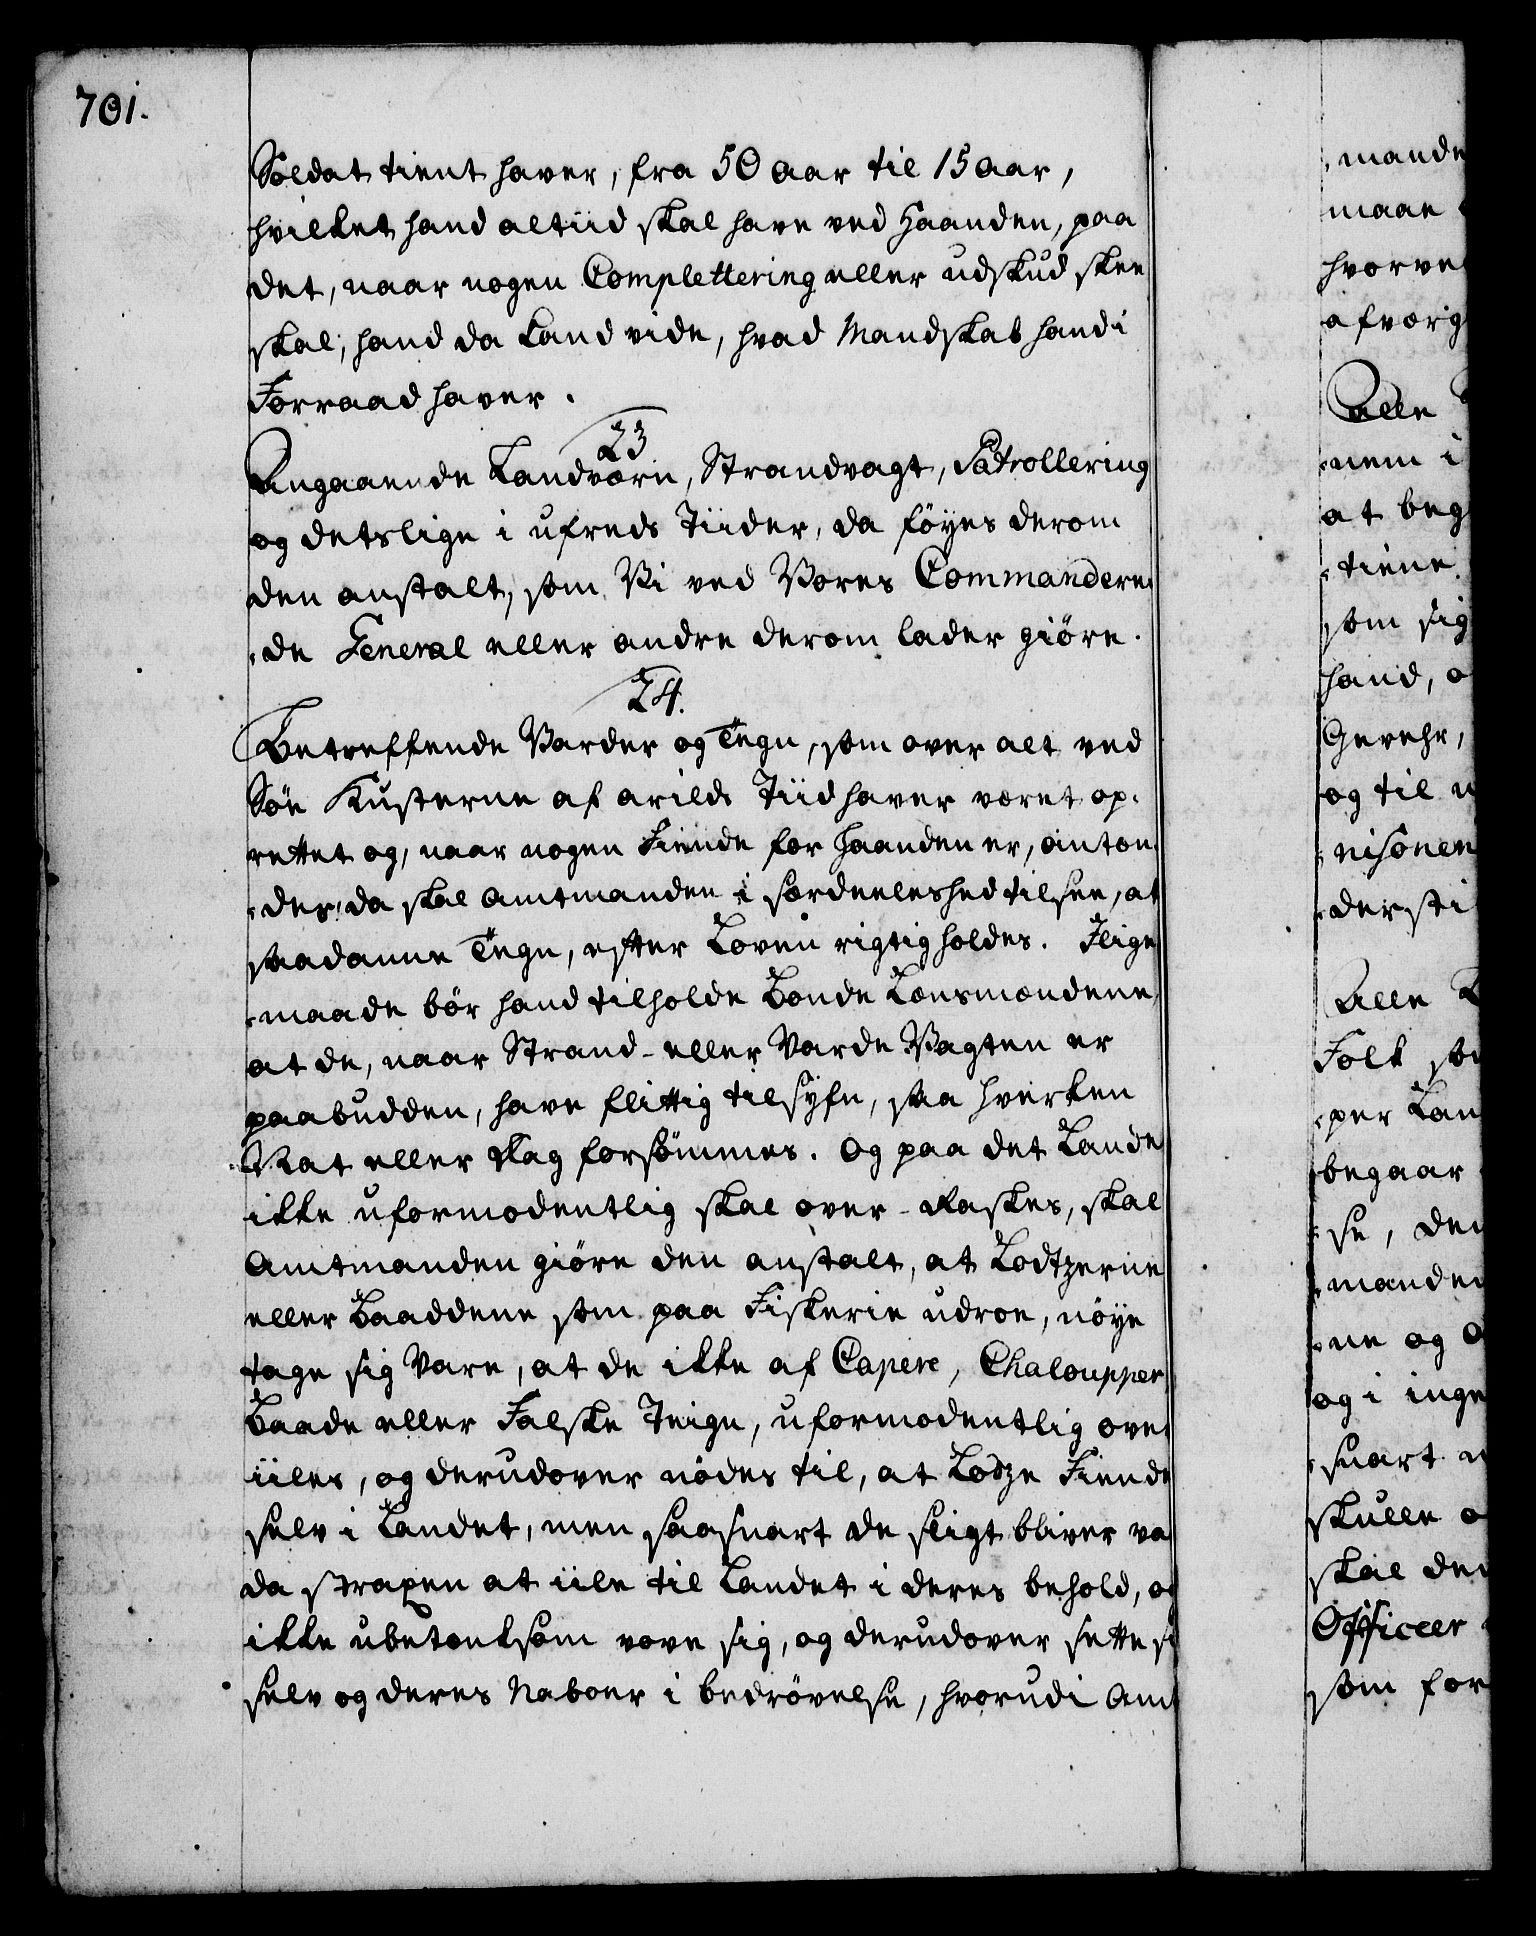 701.
Soldat tient haver, fra 50 aar til 15 aar,
hvilket hand altiid skal have ved Haanden, paa
det, naar nogen Complettering eller udskud skee
skal, hand da kand vide, hvad Mandskab hand i
Forraad haver.
23
Angaaende Landværn, Strandvagt, Patrollering
og detslige i ufreds Tiider, da föyes derom
den anstalt, som Vi ved Vores Commanderen
de General eller andre derom lader giöre.
24.
Betreffende Varder og Tegn, som over alt ved
Söe Kusterne af arilds Tiid haver været op-
rettet og, naar nogen Fiende for Haanden er, antæn
des, da skal Amtmanden i særdeeleshed tilsee, at
saadanne Tegn, efter Loven rigtig holdes. Jlige
maade bör hand tilholde Bonde Lensmændene,
at de, naar Strand- eller Varde Vagten er
paabudden, have flittig tilsyfn, saa hverken
Nat eller Dag forsömmes. Og paa det Lande
ikke uformodentlig skal over-Raskes, skal
Amtmanden giöre den anstalt, at Lodtzerne
eller Baaddene som paa Fiskerie udroe, nöye
tage sig Vare, at de ikke af Capere, Chaloupper,
Baade eller Falske Teign, uformodentlig over
iiles, og derudover nödes til, at Lodze Fiende
selv i Landet, men saasnart de sligt bliver va
da straxen at iile til Landet i deres behold, og
ikke ubetenksom vove sig, og derudover sette si
selv og deres Naboer i bedrövelse, hvorudi Amt
mande
maae
hvorve
afværg
Alle
nem i
at beg
tiene
som sig
hand, o
Gevehr,
og til
nisonen
dersti
Alle
Folk
per Lan
begaar
se, den
manden
ne og O
og i inge
snart
skulle
skal den
Officeer
som for